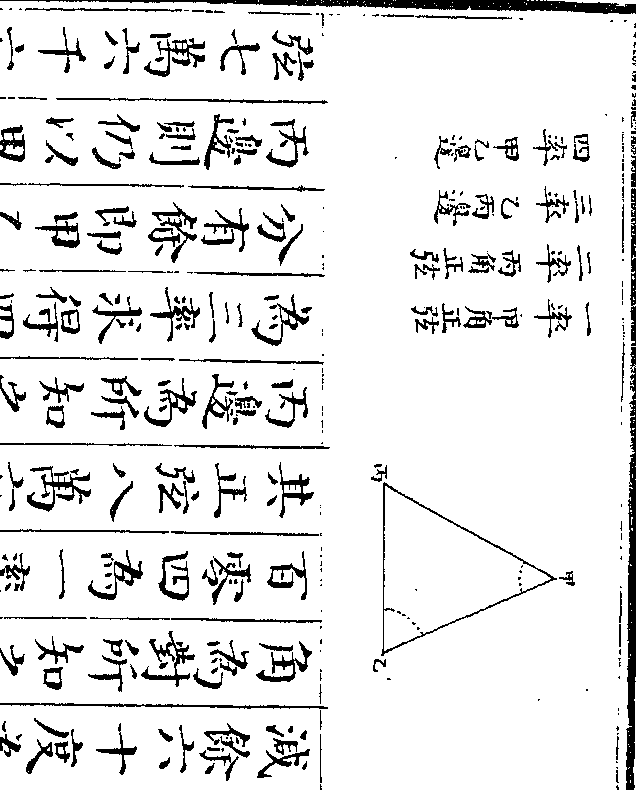 甲
乙
丙
一率 甲角正弦
二率 丙角正弦
三率 乙丙邊
四率 甲乙邊
減餘六十度
角為對所知之
百零四為一率
其正弦八萬六
丙邊為所知之
為三率求得四
分有餘即甲乙
丙邊則仍以甲
弦七萬六千六